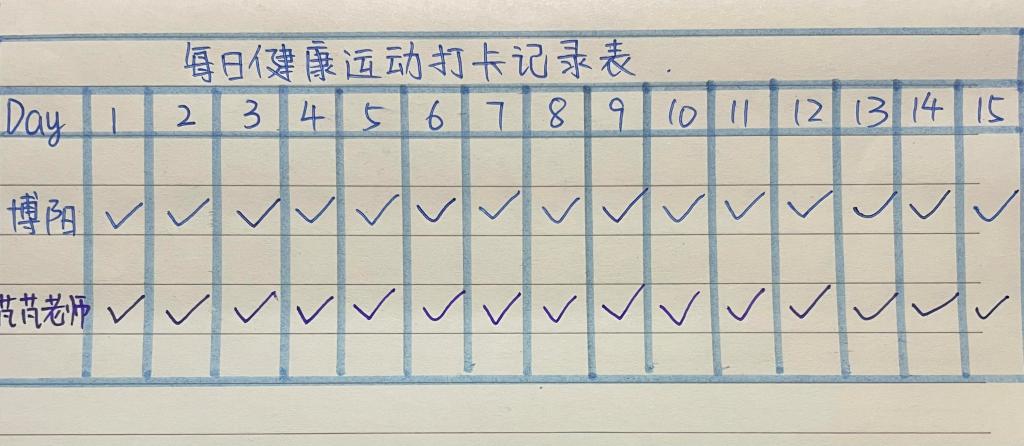 每日健康运动打卡记录表.
Day 1 2 3 4 5 6 7 8 9 10 11 12 13 14 15
博阳 ✓ ✓ ✓ ✓ ✓ ✓ ✓ ✓ ✓ ✓ ✓ ✓ ✓ ✓ ✓
芃芃老师 ✓ ✓ ✓ ✓ ✓ ✓ ✓ ✓ ✓ ✓ ✓ ✓ ✓ ✓ ✓